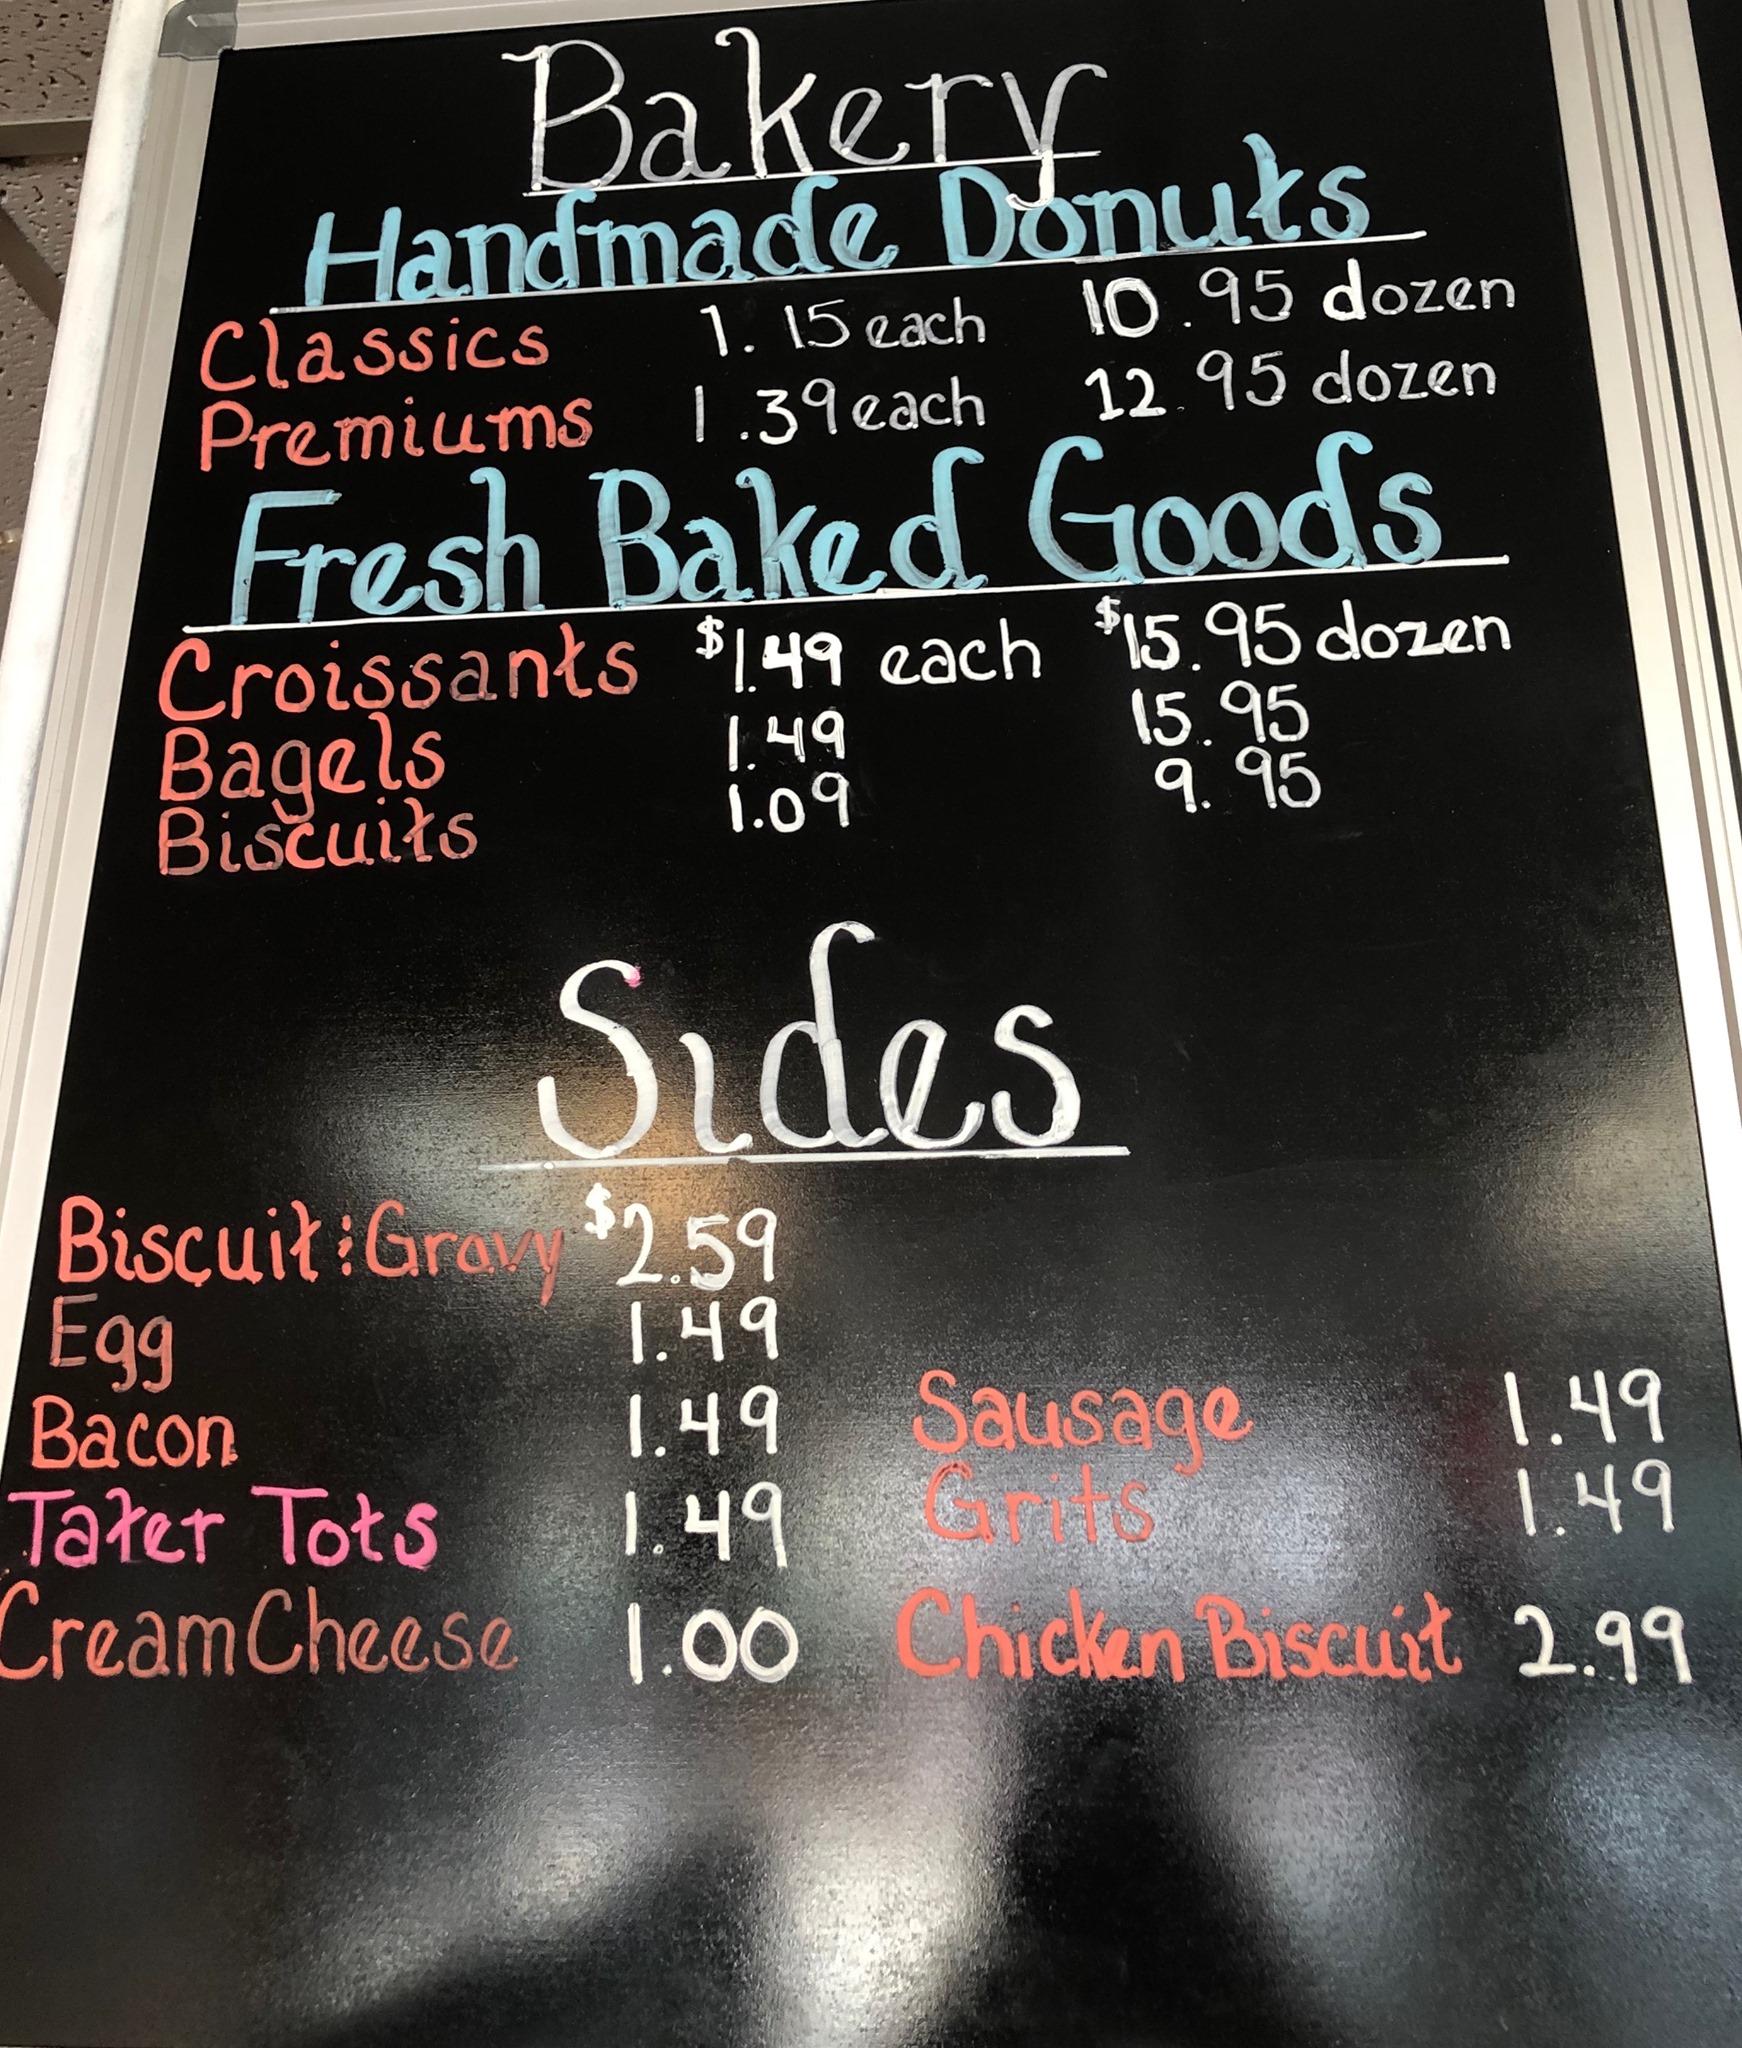 Bakery
Handmade Donuts
Classics 1.15 each 10.95 dozen
Premiums 1.39 each 12.95 dozen
Fresh Baked Goods
Croissants $1.49 each $15.95 dozen
Bagels 1.49 15.95
Biscuits 1.09 9.95
Sides
Biscuit & Gravy $2.59
Egg 1.49
Bacon 1.49 Sausage 1.49
Tater Tots 1.49 Grits 1.49
Cream Cheese 1.00 Chicken Biscuit 2.99